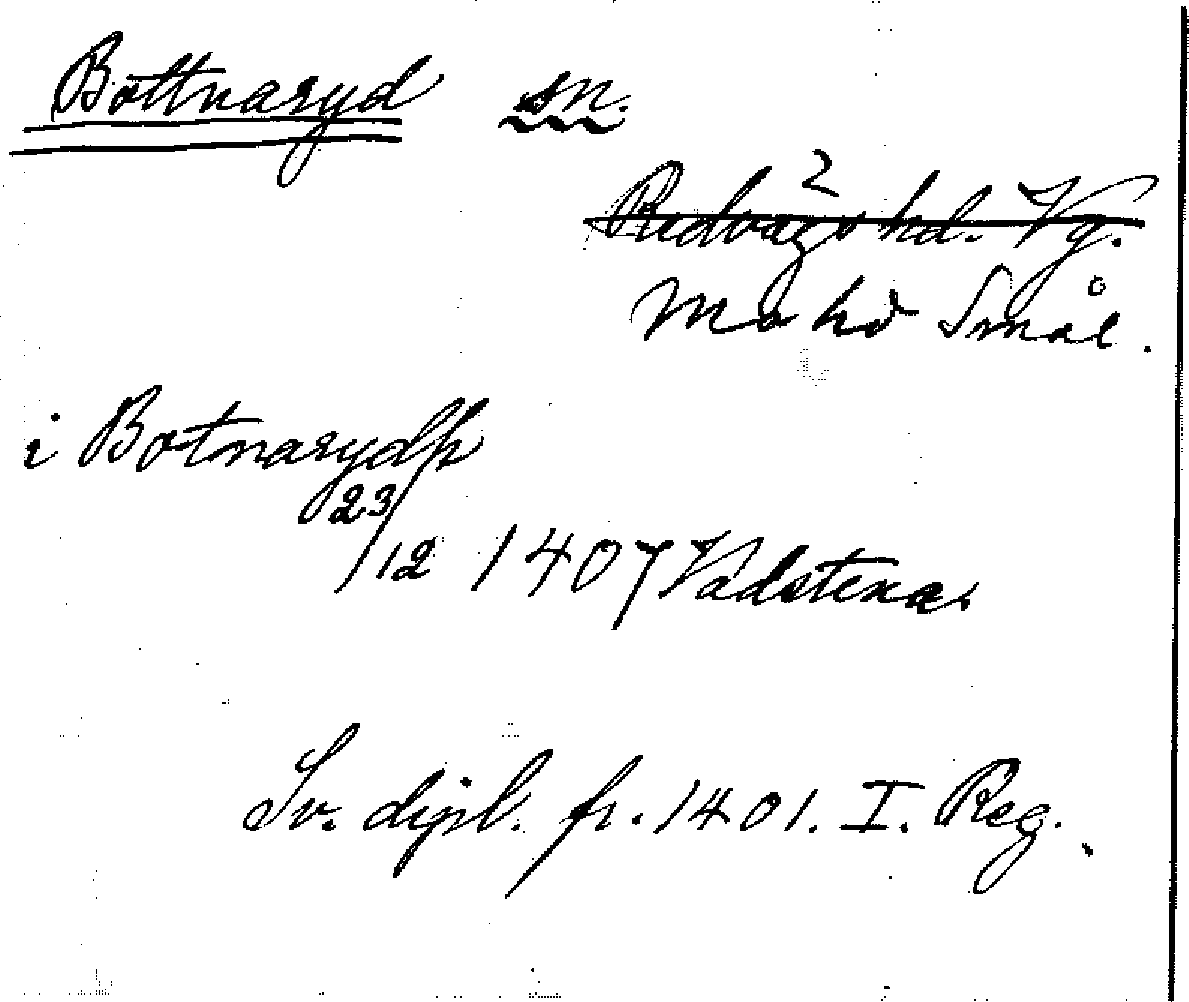 Bottnaryd sn.
2
Redvägs hd. Vg.
Mo hd Smål.
i Botnarydh
23/12 1407 Vadstena.
Sv. dipl. fr. 1401. I. Reg.